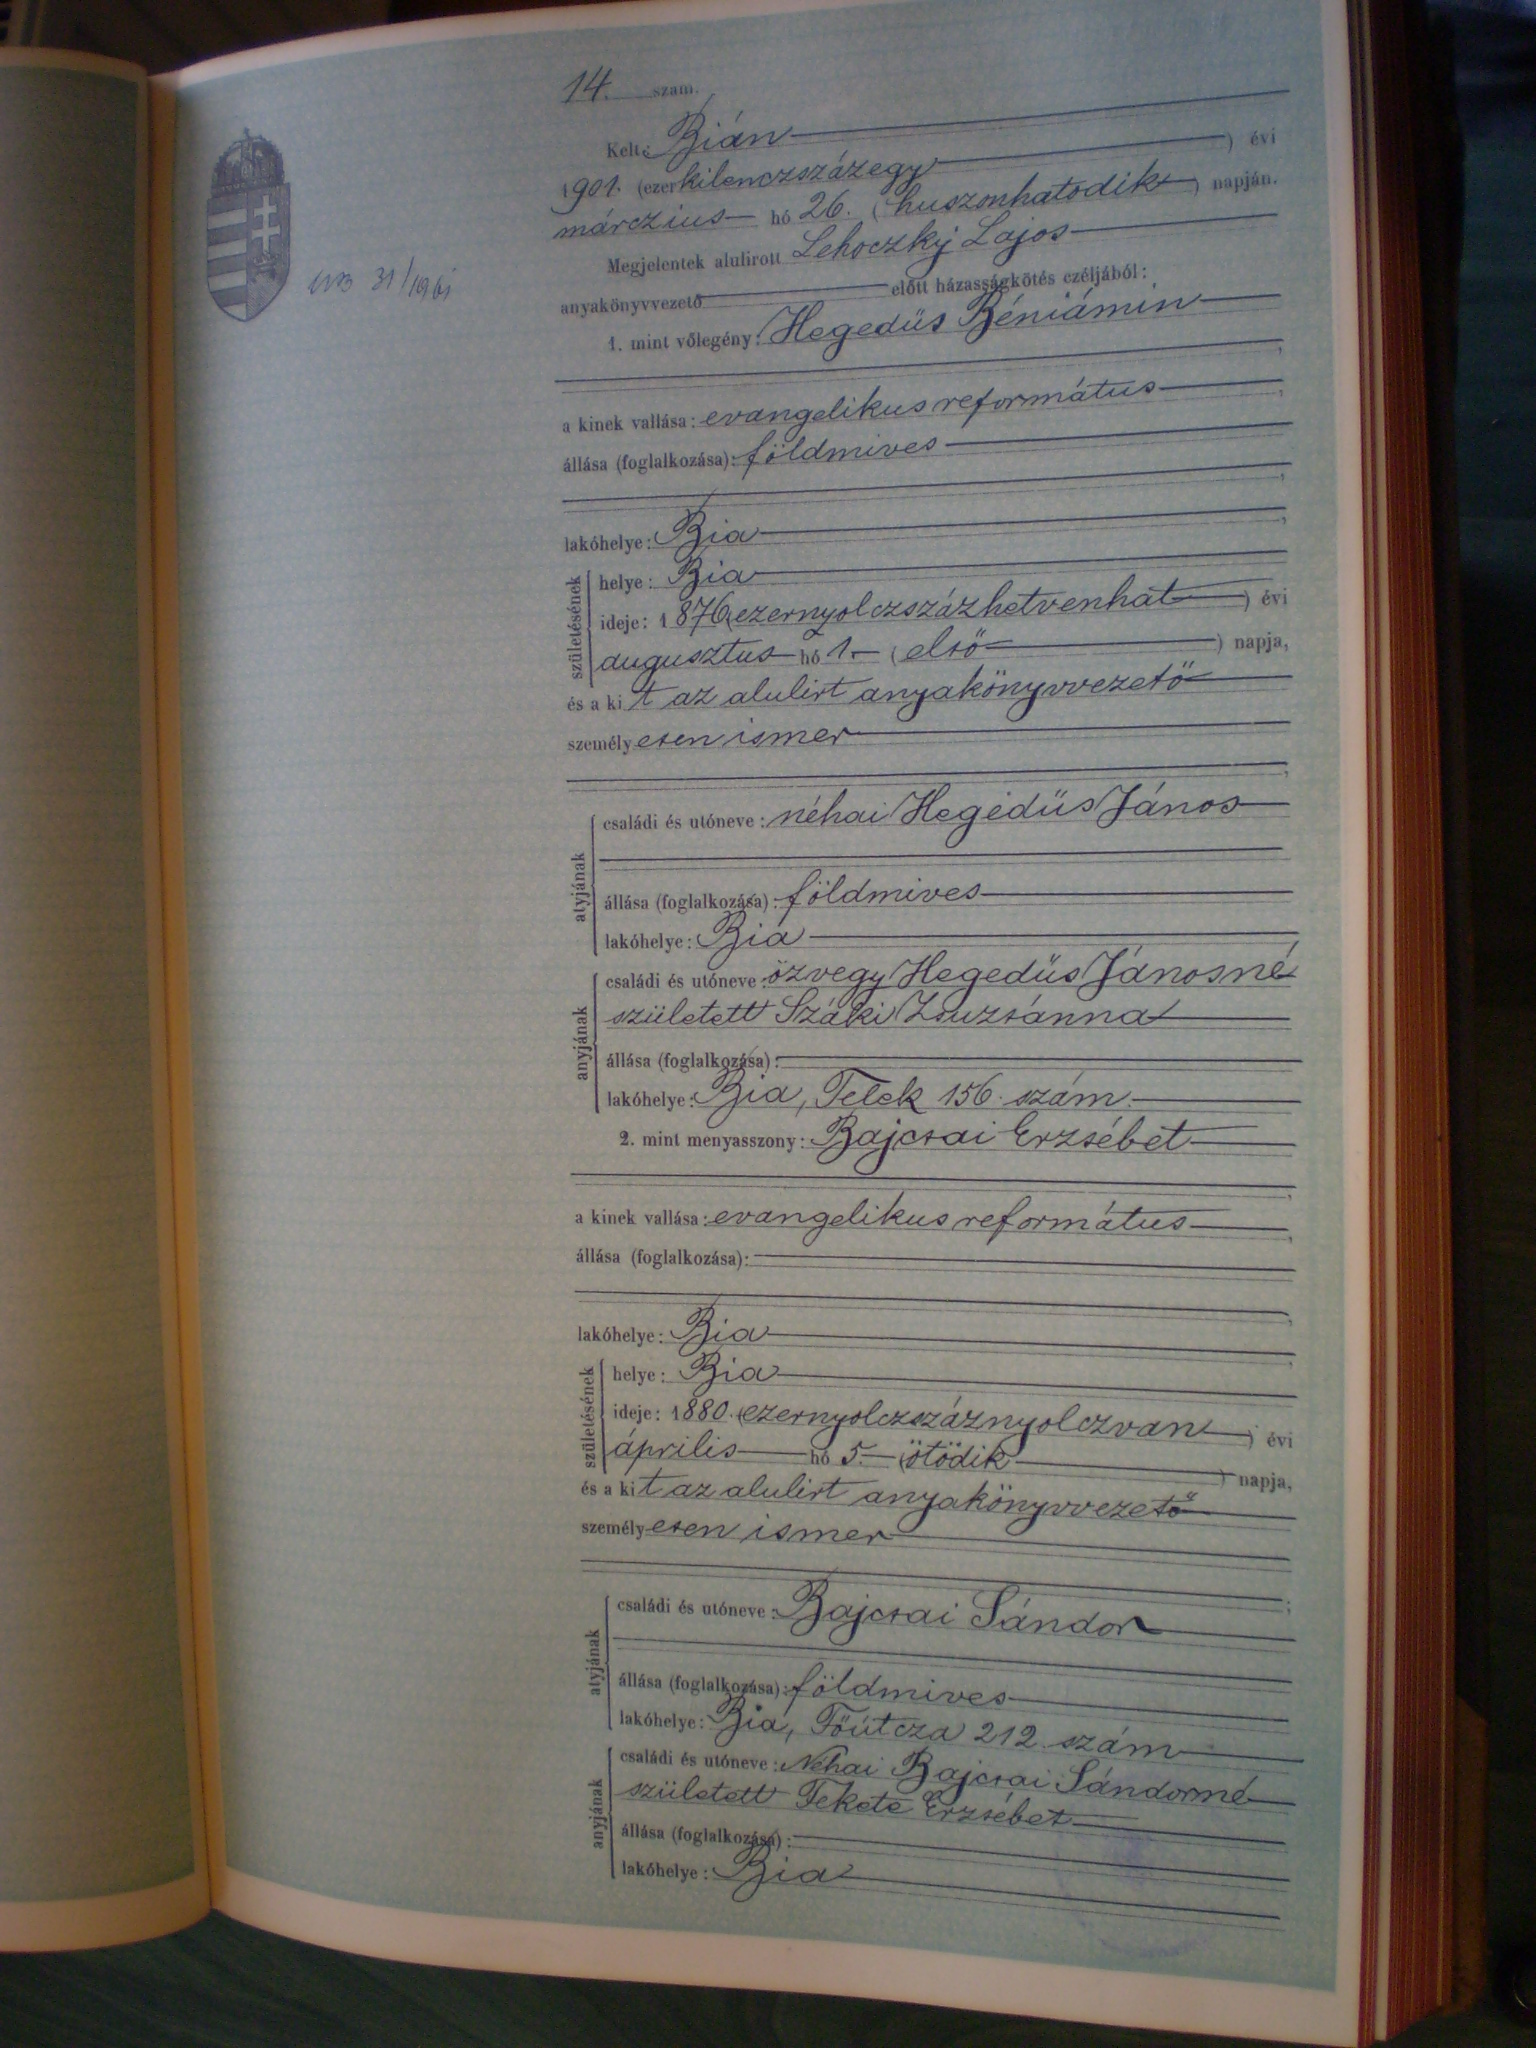 14. szám.
Kelt: Bián
1901. (ezerkilenczszázegy) évi
márczius hó 26. (huszonhatodik) napján.
Megjelentek alulirott Lehoczky Lajos
anyakönyvvezető előtt házasságkötés czéljából:
1. mint vőlegény: Hegedüs Béniámin
a kinek vallása: evangelikus református
állása (foglalkozása): földmives
lakóhelye: Bia
születésének
helye: Bia
ideje: 1876 (ezernyolczszázhetvenhat) évi
augusztus hó 1. (első) napja,
és a kit az alulirt anyakönyvvezető
személyesen ismer
atyjának
családi és utóneve: néhai Hegedüs János
állása (foglalkozása): földmives
lakóhelye: Bia
anyjának
családi és utóneve: özvegy Hegedüs Jánosné
született Száki Zsuzsánna
állása (foglalkozása):
lakóhelye: Bia, Telek 156. szám.
2. mint menyasszony: Bajcsai Erzsébet
a kinek vallása: evangelikus református
állása (foglalkozása):
lakóhelye: Bia
születésének
helye: Bia
ideje: 1880. (ezernyolczszáznyolczvan) évi
április hó 5. (ötödik) napja,
és a kit az alulirt anyakönyvvezető
személyesen ismer
atyjának
családi és utóneve: Bajcsai Sándor
állása (foglalkozása): földmives
lakóhelye: Bia, Főútcza 212. szám
anyjának
családi és utóneve: Néhai Bajcsai Sándorné
született Fekete Erzsébet
állása (foglalkozása):
lakóhelye: Bia